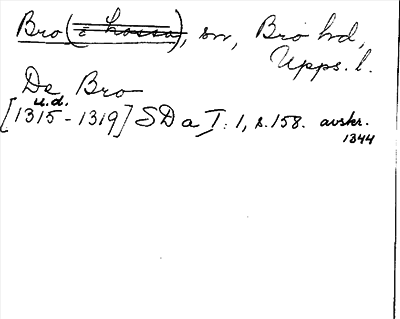 Bro (= hossa), sn, Bro hd,
Upps. l.
De Bro
u.d.
[1315-1319] SD a I: 1, s. 158. avskr.
1344